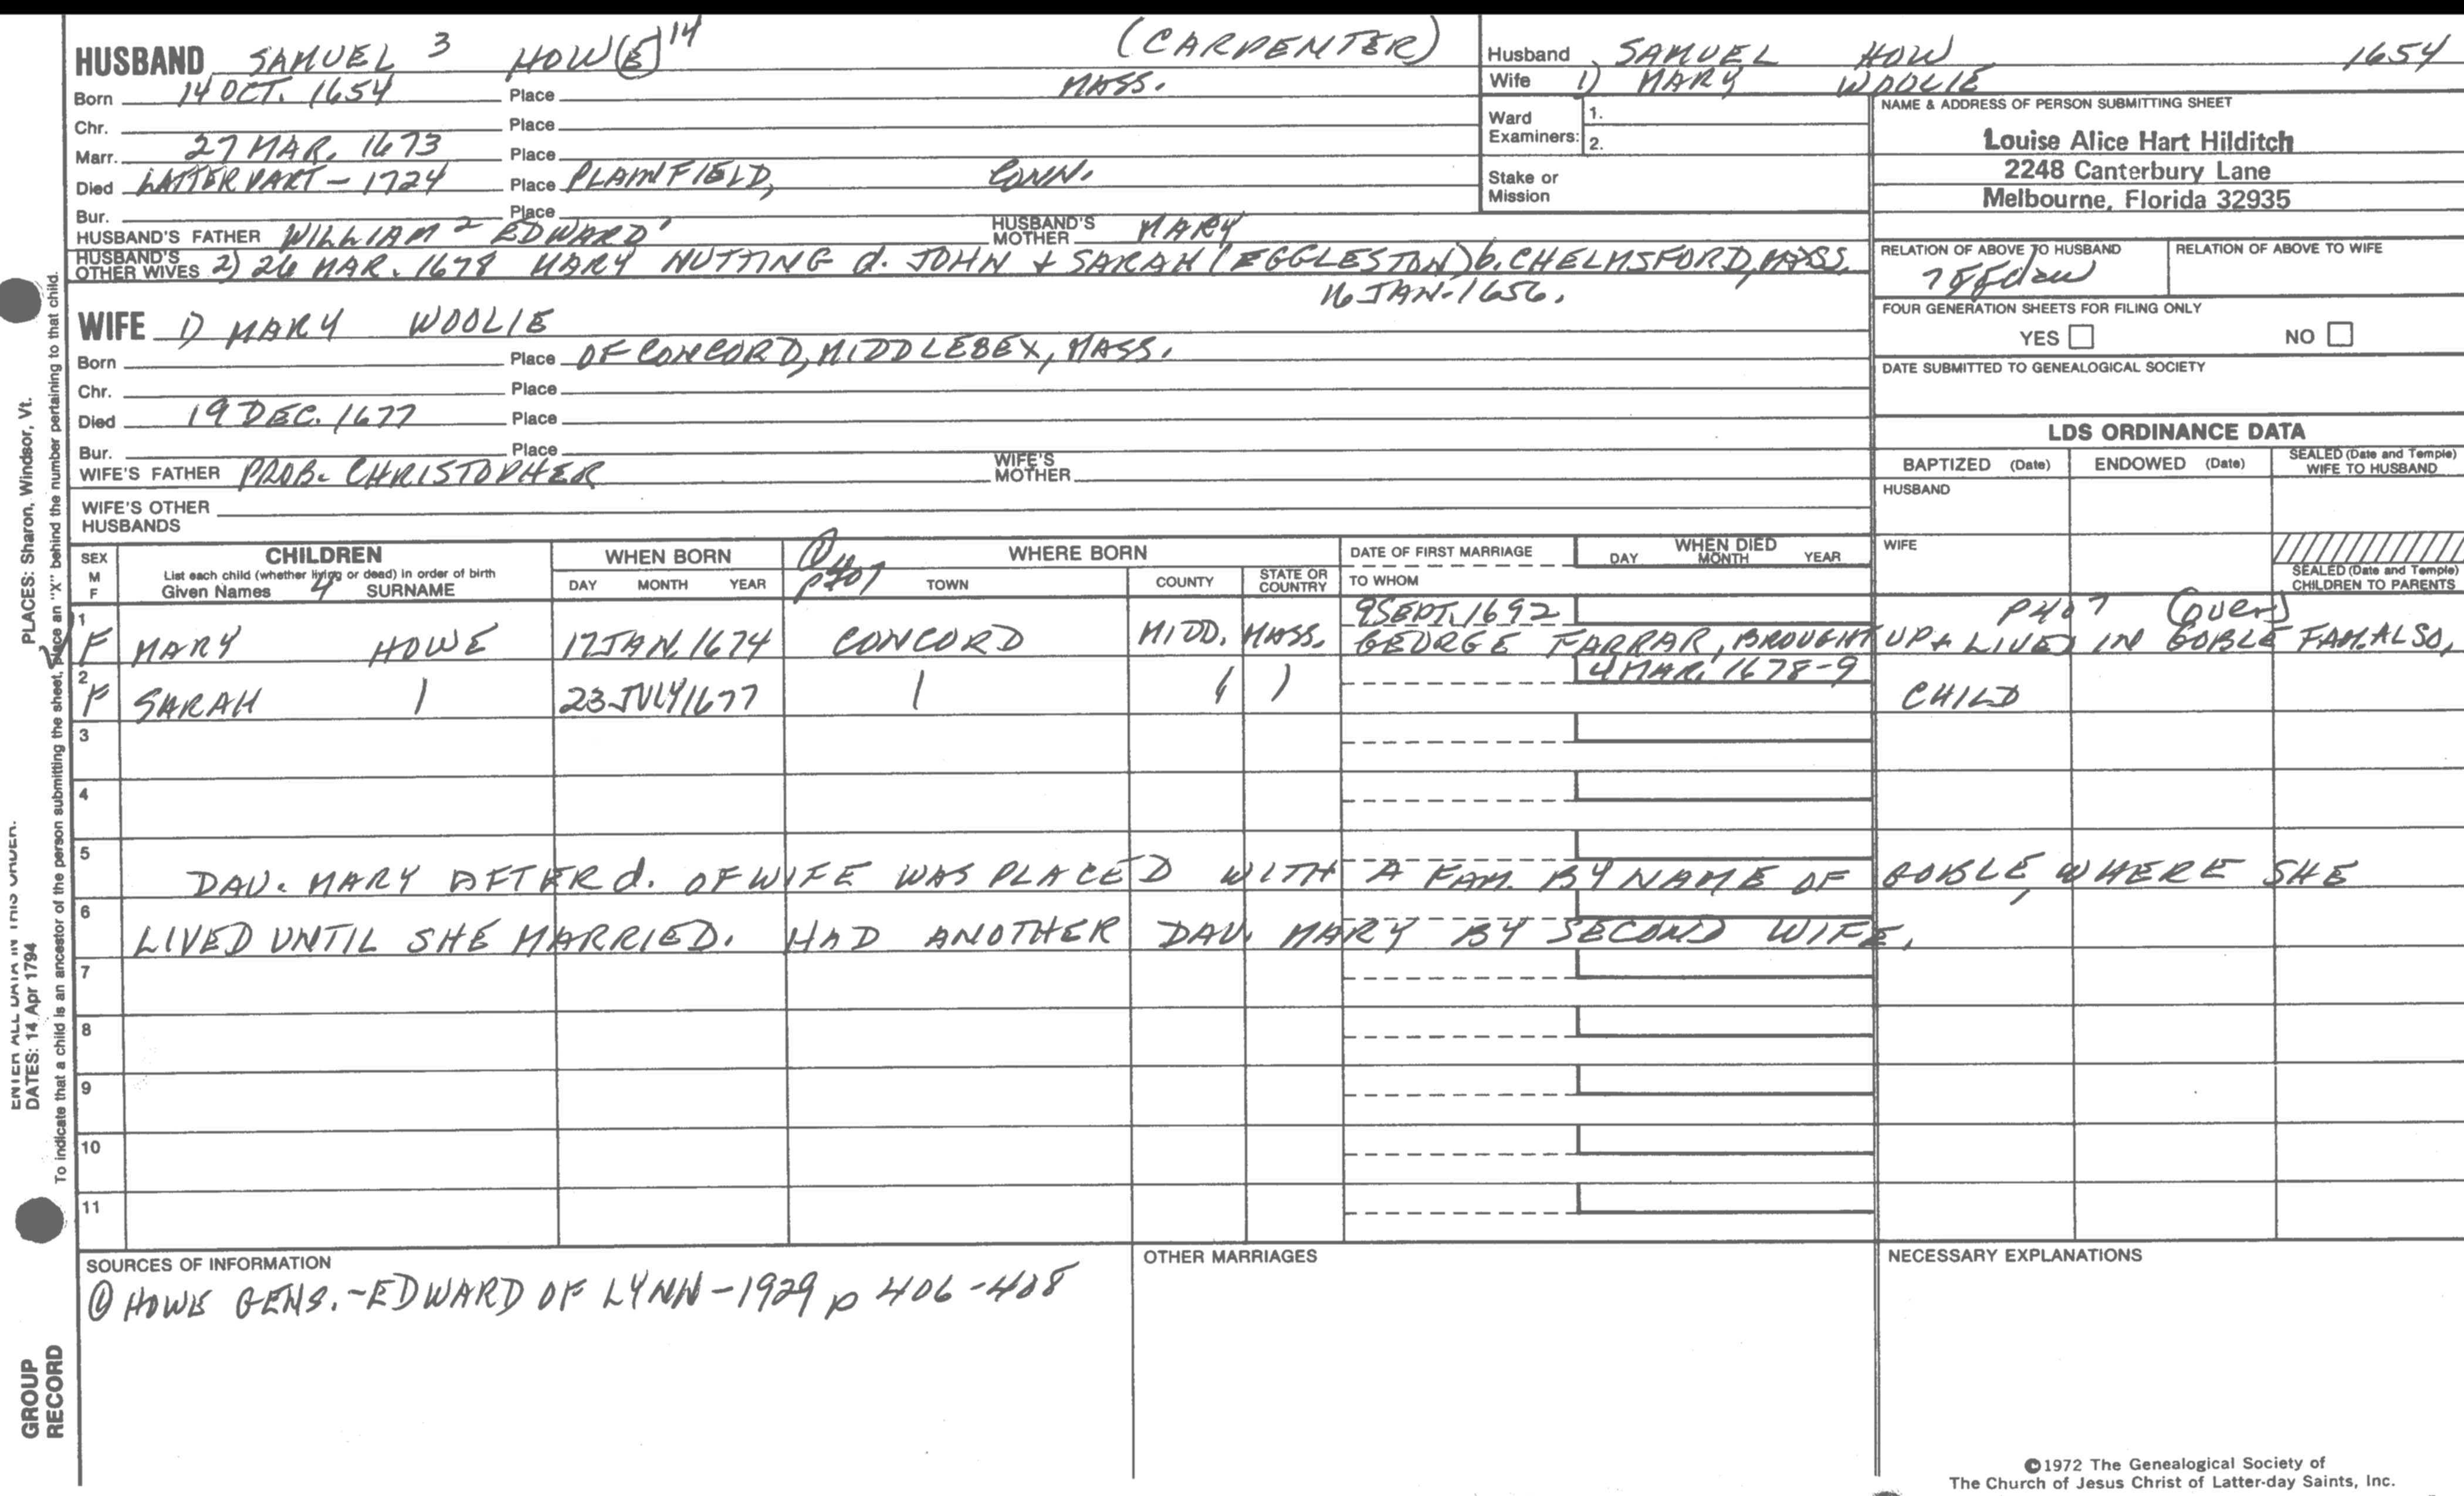 HUSBAND SAMUEL 3 HOW(E) 14 (CARPENTER)
Born 14 OCT. 1654 Place MASS.
Chr. Place
Marr. 27 MAR. 1673 Place
Died LATTER PART - 1724 Place PLAINFIELD, CONN.
Bur. Place
HUSBAND'S FATHER WILLIAM 2 EDWARD 1 HUSBAND'S MOTHER MARY
HUSBAND'S OTHER WIVES 2) 26 MAR. 1678 MARY NUTTING d. JOHN + SARAH (EGGLESTON) b. CHELMSFORD, MASS.
16 JAN. 1656.
WIFE 1) MARY WOOLIE
Born Place OF CONCORD, MIDDLESEX, MASS.
Chr. Place
Died 19 DEC. 1677 Place
Bur. Place
WIFE'S FATHER PROB. CHRISTOPHER WIFE'S MOTHER
WIFE'S OTHER HUSBANDS
Husband SAMUEL HOW 1654
Wife 1) MARY WOOLIE
Ward Examiners: 1.
2.
Stake or Mission
NAME & ADDRESS OF PERSON SUBMITTING SHEET
Louise Alice Hart Hilditch
2248 Canterbury Lane
Melbourne, Florida 32935
RELATION OF ABOVE TO HUSBAND RELATION OF ABOVE TO WIFE
FOUR GENERATION SHEETS FOR FILING ONLY
YES NO
DATE SUBMITTED TO GENEALOGICAL SOCIETY
LDS ORDINANCE DATA
BAPTIZED (Date) ENDOWED (Date) SEALED (Date and Temple) WIFE TO HUSBAND
HUSBAND
WIFE
SEALED (Date and Temple) CHILDREN TO PARENTS
SEX M F
CHILDREN
List each child (whether living or dead) in order of birth
Given Names 4 SURNAME
WHEN BORN
DAY MONTH YEAR
① p407
WHERE BORN
TOWN COUNTY STATE OR COUNTRY
DATE OF FIRST MARRIAGE
TO WHOM
WHEN DIED
DAY MONTH YEAR
1 9 SEPT. 1692 P407 (over)
F MARY HOWE 17 JAN. 1674 CONCORD MIDD. MASS. GEORGE FARRAR, BROUGHT UP + LIVED IN GOBLE FAM. ALSO,
2 4 MAR. 1678-9
F SARAH 23 JULY 1677 CHILD
3
4
5
DAU. MARY AFTER d. OF WIFE WAS PLACED WITH A FAM. BY NAME OF GOBLE, WHERE SHE
6
LIVED UNTIL SHE MARRIED. HAD ANOTHER DAU. MARY BY SECOND WIFE.
7
8
9
10
11
SOURCES OF INFORMATION
① HOWE GENS. - EDWARD OF LYNN - 1929 p 406-408
OTHER MARRIAGES
NECESSARY EXPLANATIONS
©1972 The Genealogical Society of
The Church of Jesus Christ of Latter-day Saints, Inc.
PLACES: Sharon, Windsor, Vt.
DATES: 14 Apr 1794
To indicate that a child is an ancestor of the person submitting the sheet, place an "X" behind the number pertaining to that child.
GROUP
RECORD